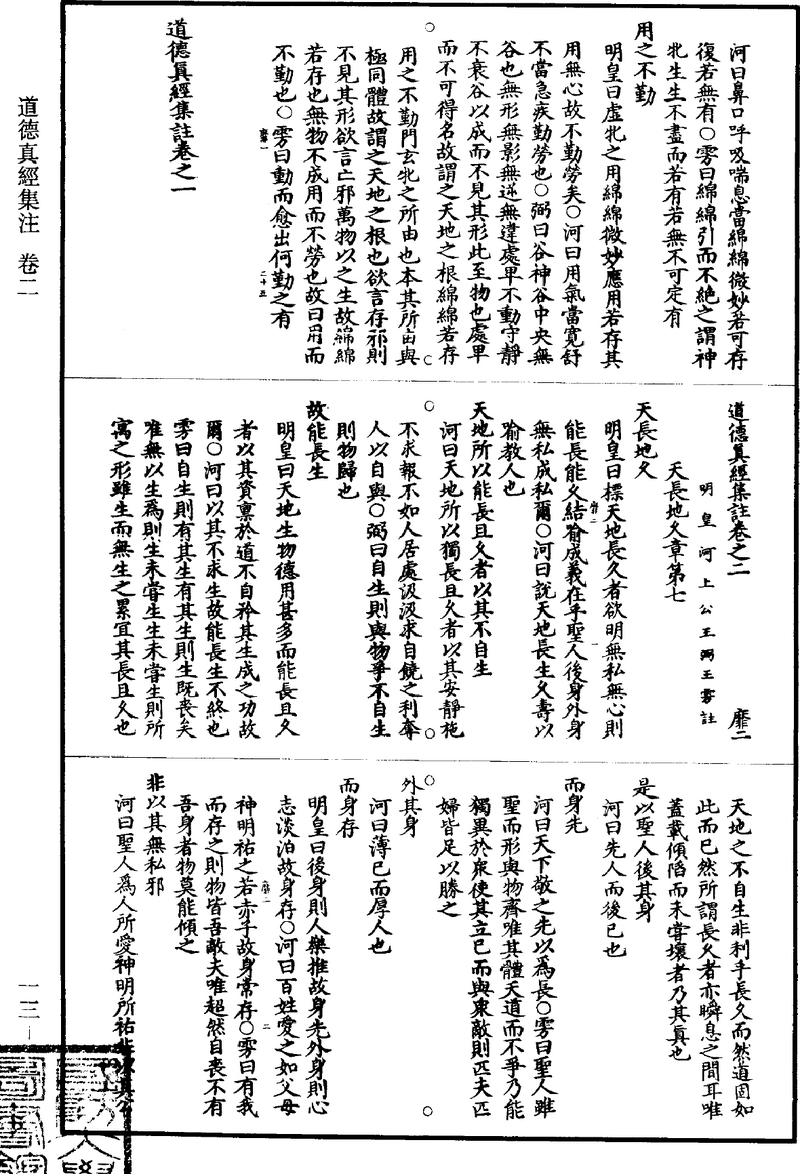 道德真經集注　卷二
一三
河曰鼻口呼吸喘息當綿綿微妙若可存
復若無有○雱曰綿綿引而不絶之謂神
牝生生不盡而若有若無不可定有
用之不勤
明皇曰虚牝之用綿綿微妙應用若存其
用無心故不勤勞矣○河曰用氣當寬舒
不當急疾勤勞也○弼曰谷神谷中央無
谷也無形無影無逆無違處卑不動守靜
不衰谷以成而不見其形此至物也處卑
而不可得名故謂之天地之根綿綿若存
用之不勤門玄牝之所由也本其所由與
極同體故謂之天地之根也欲言存邪則
不見其形欲言亡邪萬物以之生故綿綿
若存也無物不成用而不勞也故曰用而
不勤也○雱曰動而愈出何勤之有
靡一
二十五
道德真經集註卷之一
道德真經集註卷之二
靡二
明皇河上公王弼王雱註
天長地久章第七
天長地久
明皇曰標天地長久者欲明無私無心則
能長能久結喻成義在乎聖人後身外身
靡二
一
無私成私爾○河曰說天地長生久壽以
喻教人也
天地所以能長且久者以其不自生
河曰天地所以獨長且久者以其安靜施
不求報不如人居處汲汲求自饒之利奪
人以自與○弼曰自生則與物爭不自生
則物歸也
故能長生
明皇曰天地生物德用甚多而能長且久
者以其資稟於道不自矜其生成之功故
爾○河曰以其不求生故能長生不終也
雱曰自生則有其生有其生則生既喪矣
唯無以生爲則生未嘗生生未嘗生則所
寓之形雖生而無生之累宜其長且久也
天地之不自生非利乎長久而然道固如
此而已然所謂長久者亦瞬息之間耳唯
蓋載傾陷而未嘗壞者乃其真也
是以聖人後其身
河曰先人而後已也
而身先
河曰天下敬之先以爲長○雱曰聖人雖
聖而形與物齊唯其體天道而不爭乃能
獨異於衆使其立已而與衆敵則匹夫匹
婦皆足以勝之
外其身
河曰薄已而厚人也
而身存
明皇曰後身則人樂推故身先外身則心
志淡泊故身存○河曰百姓愛之如父母
神明祐之若赤子故身常存○雱曰有我
靡二
二
而存之則物皆吾敵夫唯超然自喪不有
吾身者物莫能傾之
非以其無私邪
河曰聖人爲人所愛神明所祐非以其公